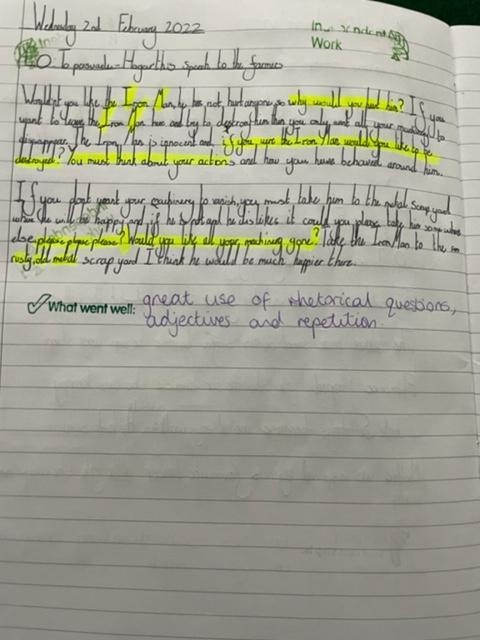 Wednesday 2nd February 2022
Independent
Work
LO To persuade - Hogarth's speak to the farmers
Wouldn't you like the Iron Man, he has not hurt anyone so why would you hurt him? If you
want to leave the Iron Man here and try to destroy him then you only want all your machinery to
disappear. The Iron Man is ignocent and if you were the Iron Man would you like to be
destroyed? You must think about your actions and how you have behaved around him.
If you don't want your machinery to vanish, you must take him to the metal scrap yard
where he will be happy and if he is not and he dislikes it could you please take him some where
else please please please? Would you like all your machinery gone? Take the Iron Man to the
rusty, old metal scrap yard I think he would be much happier there.
What went well: great use of rhetorical questions,
adjectives and repetition.